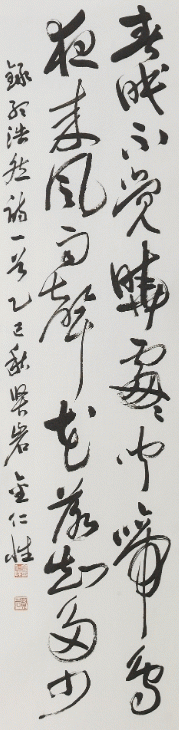 春眠不覺曉處處聞啼鳥
夜來風雨聲花落知多少
錄孟浩然詩一首 乙巳秋 賢岩 金仁性